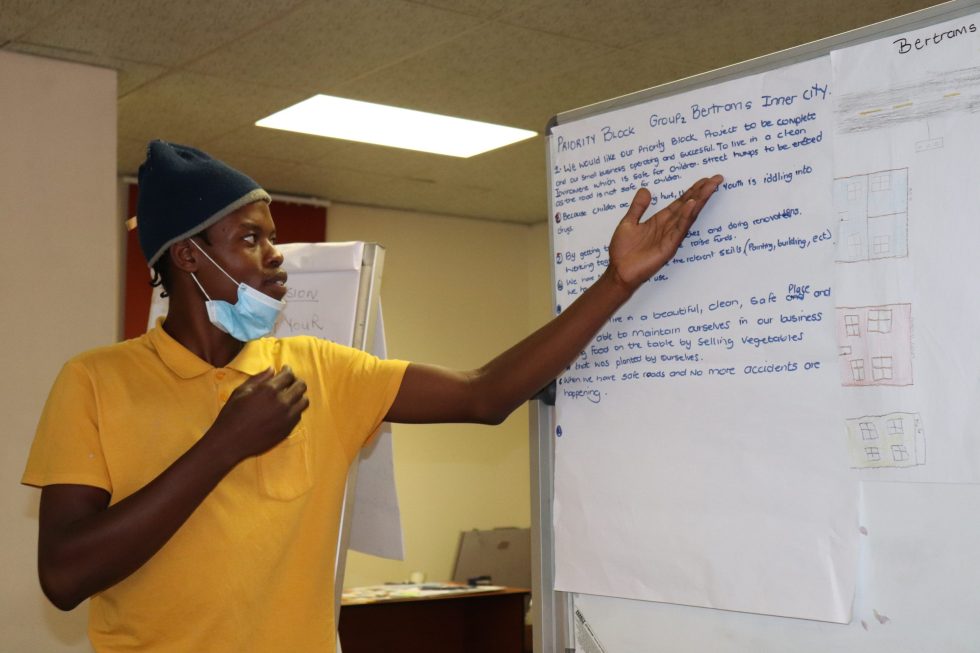 Bertrams
PRIORITY BLOCK Group2 Bertrams Inner City.
1. We would like our Priority Block Project to be complete
and our small business operating and succesful. To live in a clean
which is safe for children. Street humps to be erected
as the road is not safe for children.
Because children are hurt, youth is iddling into
drugs.
By getting and doing renovations.
working raise funds.
We have the relevant skills, (Painting, building, e.c.t.
we use.
in a beautiful, clean, safe Place and
able to maintain ourselves in our business
food on the table by selling vegetables
that was planted by ourselves.
When we have safe roads and no more accidents are
happening.
SION
YOUR